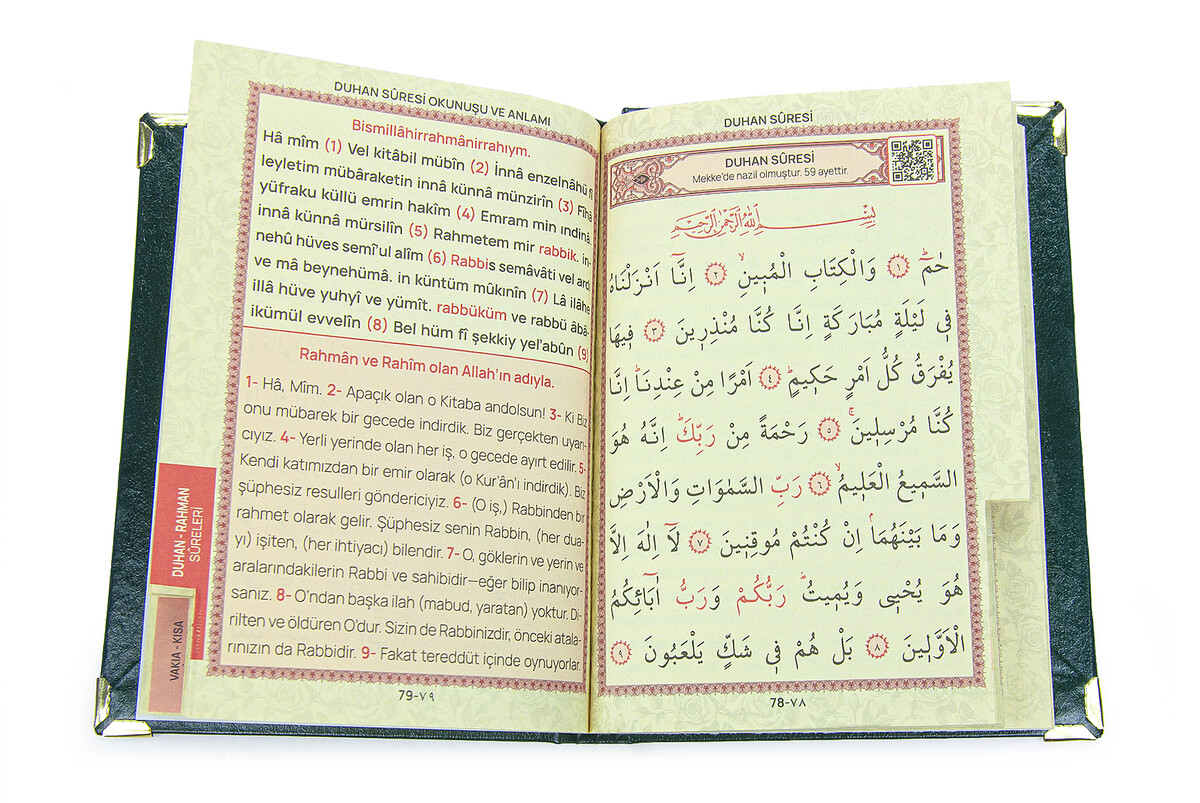 DUHAN SÛRESİ
DUHAN SÛRESİ
Mekke'de nazil olmuştur. 59 ayettir.
بِسْمِ اللّٰهِ الرَّحْمٰنِ الرَّحِيمِ
حٰمٓ ﴿١﴾ وَالْكِتَابِ الْمُبٖينِ ﴿٢﴾ اِنَّٓا اَنْزَلْنَاهُ
فٖى لَيْلَةٍ مُبَارَكَةٍ اِنَّا كُنَّا مُنْذِرٖينَ ﴿٣﴾ فٖيهَا
يُفْرَقُ كُلُّ اَمْرٍ حَكٖيمٍ ﴿٤﴾ اَمْرًا مِنْ عِنْدِنَا اِنَّا
كُنَّا مُرْسِلٖينَ ﴿٥﴾ رَحْمَةً مِنْ رَبِّكَ اِنَّهُ هُوَ
السَّمٖيعُ الْعَلٖيمُ ﴿٦﴾ رَبِّ السَّمٰوَاتِ وَالْاَرْضِ
وَمَا بَيْنَهُمَا اِنْ كُنْتُمْ مُوقِنٖينَ ﴿٧﴾ لَٓا اِلٰهَ اِلَّا
هُوَ يُحْيٖى وَيُمٖيتُ رَبُّكُمْ وَرَبُّ اٰبَٓائِكُمُ
الْاَوَّلٖينَ ﴿٨﴾ بَلْ هُمْ فٖى شَكٍّ يَلْعَبُونَ ﴿٩﴾
78-٧٨
DUHAN SÛRESİ OKUNUŞU VE ANLAMI
Bismillâhirrahmânirrahıym.
Hâ mîm (1) Vel kitâbil mübîn (2) İnnâ enzelnâhü fî
leyletim mübâraketin innâ künnâ münzirîn (3) Fîhâ
yüfraku küllü emrin hakîm (4) Emram min ındinâ,
innâ künnâ mürsilîn (5) Rahmetem mir rabbik. in-
nehû hüves semî'ul alîm (6) Rabbis semâvâti vel ard
ve mâ beynehümâ. in küntüm mûkınîn (7) Lâ ilâhe
illâ hüve yuhyî ve yümît. rabbüküm ve rabbü âbâ-
ikümül evvelîn (8) Bel hüm fî şekkiy yel'abûn (9)
Rahmân ve Rahîm olan Allah'ın adıyla.
1- Hâ, Mîm. 2- Apaçık olan o Kitaba andolsun! 3- Ki Biz
onu mübarek bir gecede indirdik. Biz gerçekten uyarı-
cıyız. 4- Yerli yerinde olan her iş, o gecede ayırt edilir. 5-
Kendi katımızdan bir emir olarak (o Kur'ân'ı indirdik). Biz
şüphesiz resulleri göndericiyiz. 6- (O iş,) Rabbinden bir
rahmet olarak gelir. Şüphesiz senin Rabbin, (her dua-
yı) işiten, (her ihtiyacı) bilendir. 7- O, göklerin ve yerin ve
aralarındakilerin Rabbi ve sahibidir—eğer bilip inanıyor-
sanız. 8- O'ndan başka ilah (mabud, yaratan) yoktur. Di-
rilten ve öldüren O'dur. Sizin de Rabbinizdir, önceki atala-
rınızın da Rabbidir. 9- Fakat tereddüt içinde oynuyorlar.
79-٧٩
DUHAN - RAHMAN
SÛRELERİ
VAKIA - KISA